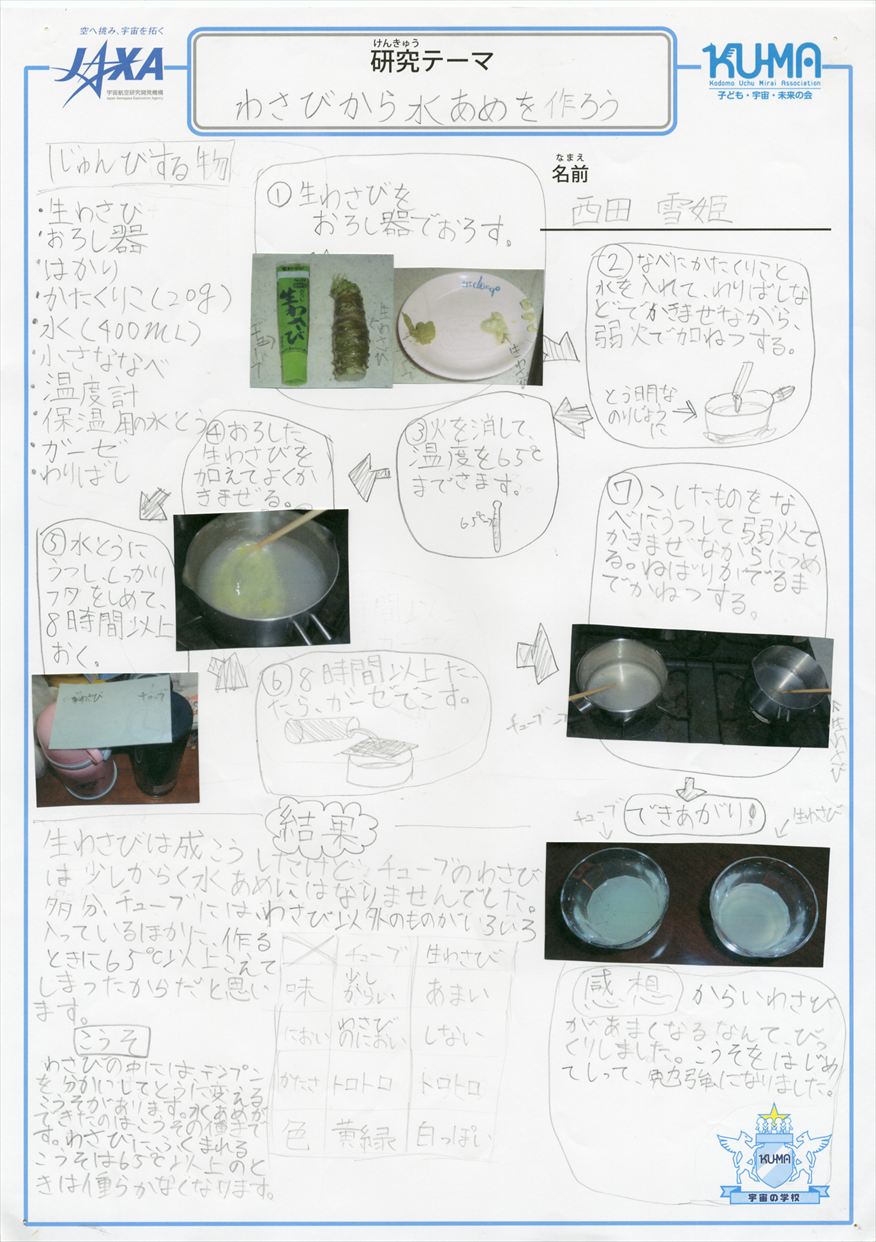 空へ挑み、宇宙を拓く
JAXA
宇宙航空研究開発機構
Japan Aerospace Exploration Agency
けんきゅう
研究テーマ
わさびから水あめを作ろう
KU-MA
Kodomo Uchu Mirai Association
子ども・宇宙・未来の会
なまえ
名前
西田 雪姫
じゅんびする物
・生わさび
・おろし器
・はかり
・かたくりこ(20g)
・水(400mL)
・小さななべ
・温度計
・保温用の水とう
・ガーゼ
・わりばし
①生わさびを
おろし器でおろす。
生わさび
チューブ
生わさび
②なべにかたくりこと
水を入れて、わりばしな
どでかきまぜながら、
弱火で加ねつする。
とう明な
のりじょう
に
③火を消して、
温度を65℃
までさます。
65℃
④おろした
生わさびを
加えてよくか
きまぜる。
⑤水とうに
うつし、しっかり
フタをしめて、
8時間以上
おく。
生わさび
チューブ
⑥8時間以上た
たら、ガーゼでこす。
⑦こしたものをな
べにうつして弱火で
かきまぜながらにつめ
る。ねばりがでるま
でかねつする。
チューブ
生わさび
できあがり!
チューブ
生わさび
結果
生わさびは成こうしたけど、チューブのわさび
は少しからく水あめにはなりませんでした。
多分、チューブには、わさび以外のものがいろいろ
入っているほかに、作る
ときに65℃以上こえて
しまったからだと思い
ます。
チューブ 生わさび
味 少しからい あまい
におい わさびのにおい しない
かたさ トロトロ トロトロ
色 黄緑 白っぽい
こうそ
わさびの中には、デンプン
を分かいしてとうに変える
こうそがあります。水あめが
できたのはこうその働きで
す。わさびにふくまれる
こうそは65℃以上のと
きは働らかなくなります。
感想
からいわさび
があまくなるなんて、びっ
くりしました。こうそをはじめ
てしって、勉強になりました。
KU-MA
宇宙の学校